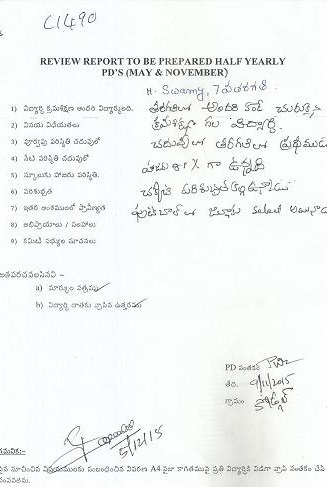 C1490
REVIEW REPORT TO BE PREPARED HALF YEARLY
PD'S (MAY & NOVEMBER)
H. Swamy, 7వ తరగతి.
1) విద్యార్థి క్రమశిక్షణ అందరి విద్యార్థులది. తరగతిలో అందరి కంటే చురుకైన
2) వినయ విధేయతలు క్రమశిక్షణ గల విద్యార్థి.
3) పూర్వపు పరిస్థితి చదువులో చదువులో తరగతిలో ప్రథముడు
4) నేటి పరిస్థితి చదువులో
5) స్కూలుకు హాజరు పరిస్థితి. హాజరు 91% గా ఉన్నది
6) పరిశుభ్రత చక్కటి పరిశుభ్రత కల్గి ఉన్నాడు
7) ఇతర అంశములలో ప్రావీణ్యత ఫుట్‌బాల్ లో
8) అభిప్రాయాలు / సలహాలు
9) కమిటీ సభ్యుల సూచనలు
జతపరచవలసినవి :-
a) మార్కుల పత్రము
b) విద్యార్థి దాతకు వ్రాసిన ఉత్తరము
PD సంతకం
తేది. 9/11/2015
గ్రామం
5/12/15
గమనిక:-
పైన సూచించిన విషయములకు సంబంధించిన వివరణ A4 సైజు కాగితముపై ప్రతి విద్యార్థికి విడిగా వ్రాసి సంతకం చేసి